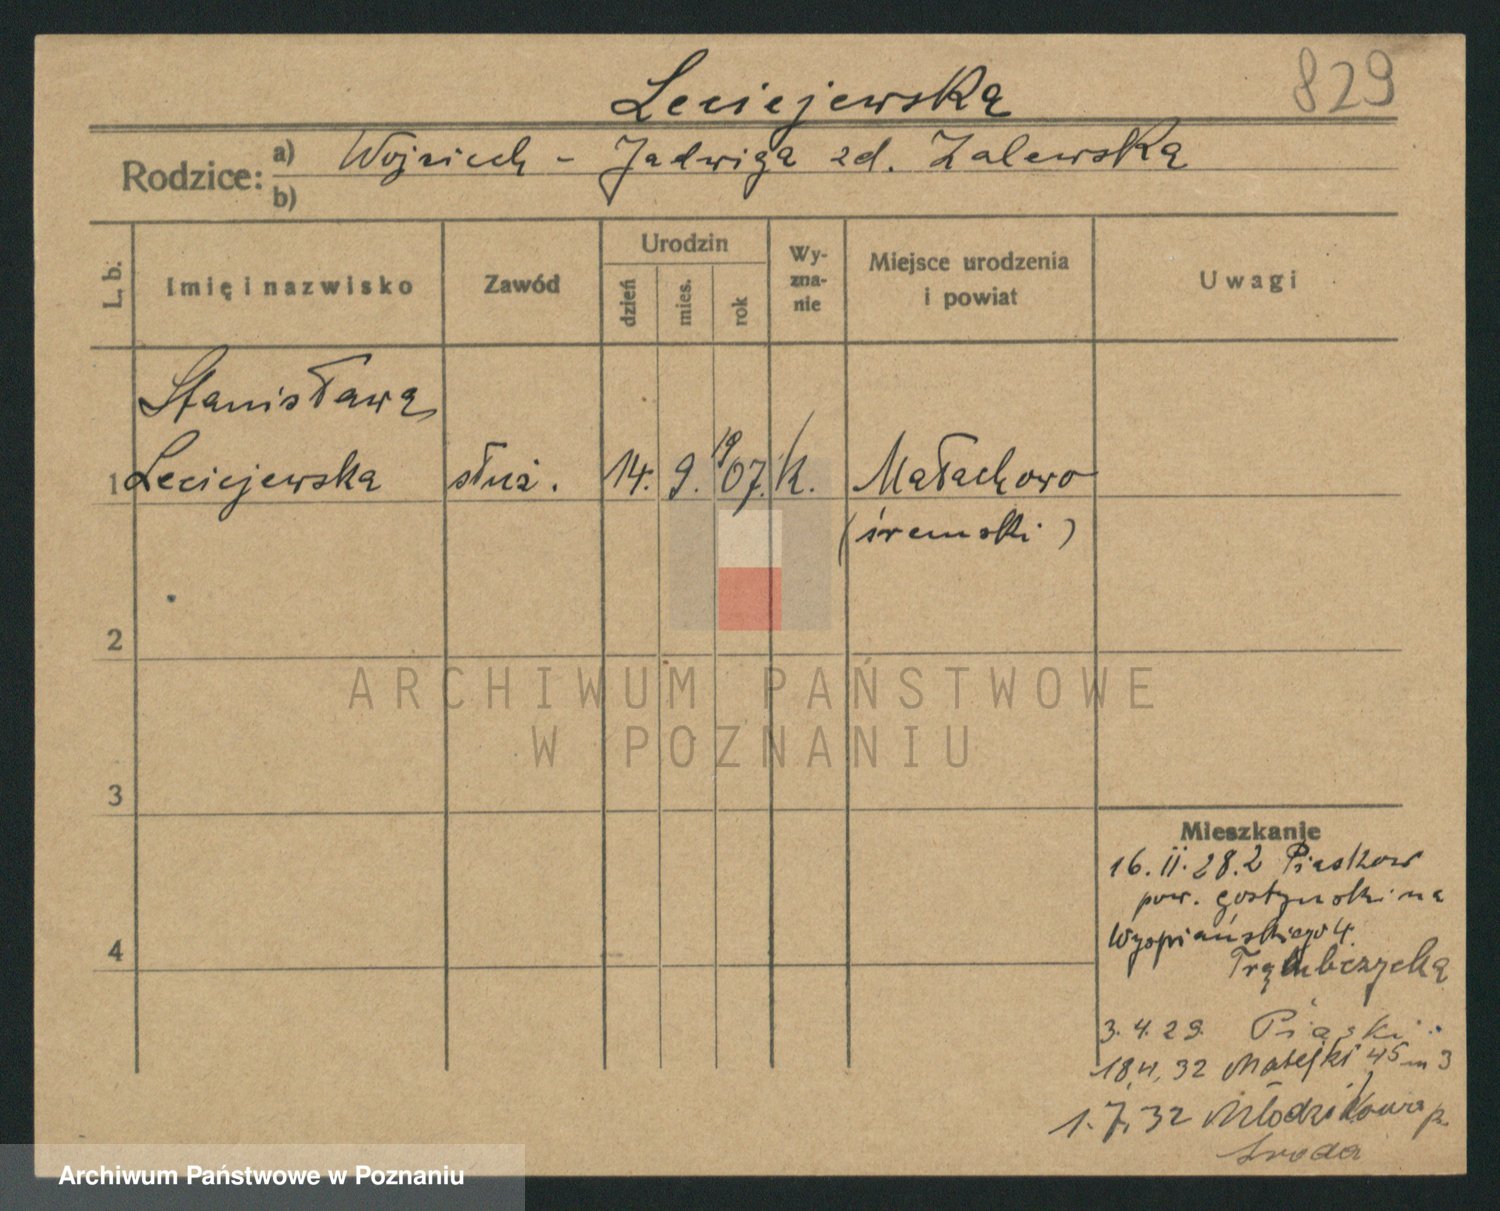 829
Leciejewska
Rodzice: a) Wojciech - Jadwiga zd. Zalewska
b)
L. b.
Imię i nazwisko
Zawód
Urodzin
dzień
mies.
rok
Wy-
zna-
nie
Miejsce urodzenia
i powiat
Uwagi
Stanisława
1 Leciejewska służ. 14. 9. 1907. k. Małachowo
(śremski)
2
3
4
ARCHIWUM PAŃSTWOWE
W POZNANIU
Mieszkanie
16. II. 28. z Piasków
pow. gostyński na
Wyspiańskiego 4.
Trąmbczycka
3. 4. 29. Piaski
18.4.32 Matejki 45 m 3
1. 7. 32 Młodzikowo p.
Środa
Archiwum Państwowe w Poznaniu